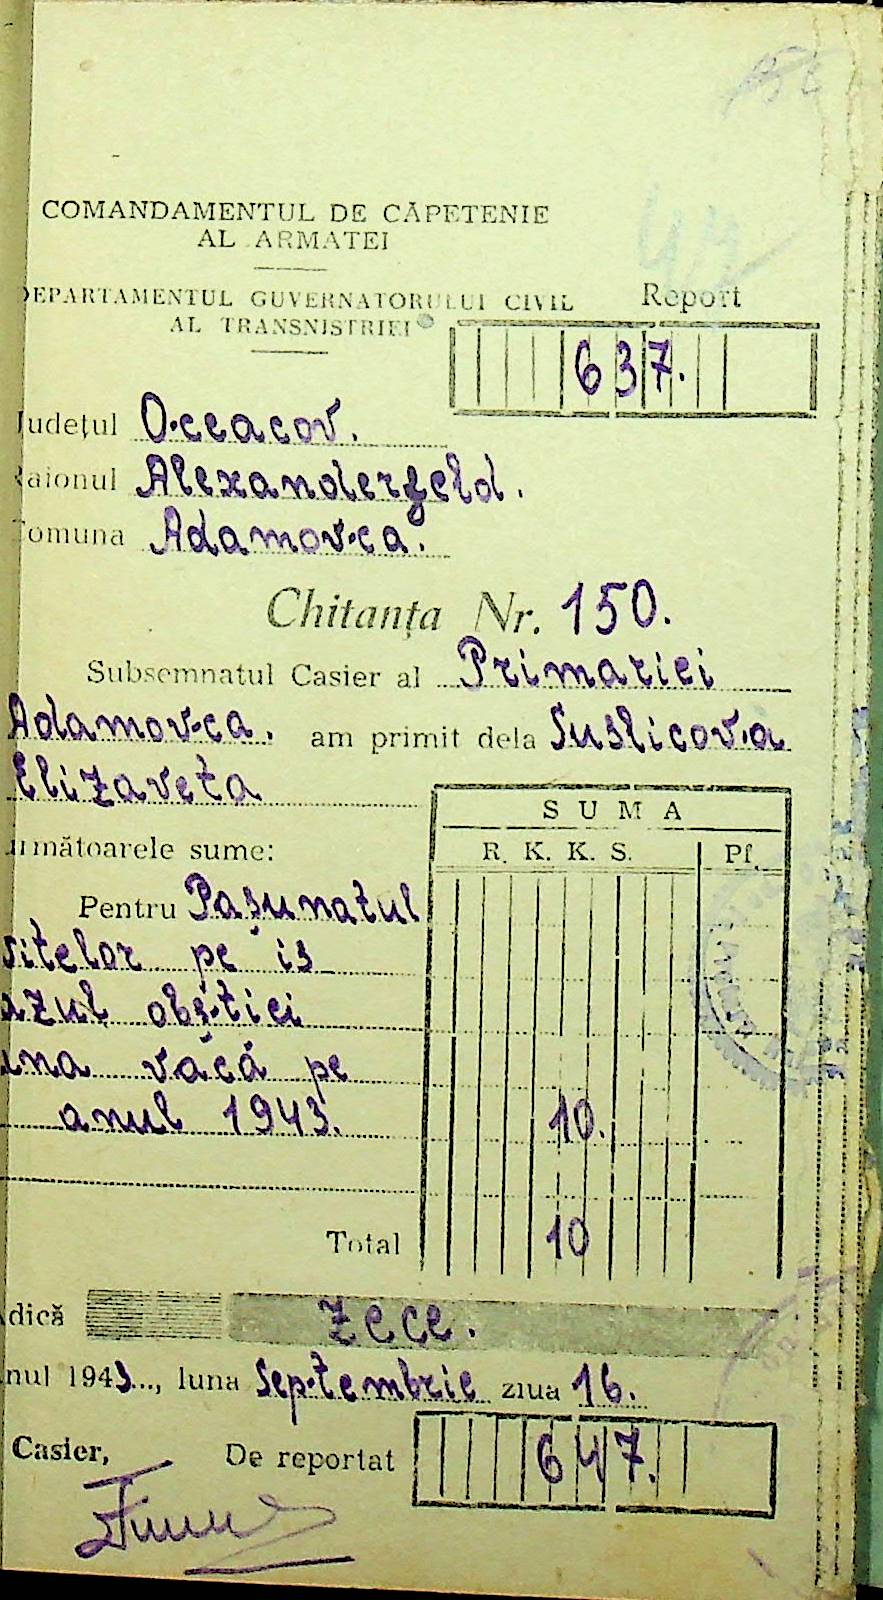 COMANDAMENTUL DE CĂPETENIE
AL ARMATEI
DEPARTAMENTUL GUVERNATORULUI CIVIL
AL TRANSNISTRIEI
Report
637.
Județul Oceacov.
Raionul Alexanderfeld.
Comuna Adamovca.
Chitanța Nr. 150.
Subsemnatul Casier al Primariei
Adamovca. am primit dela Suslicova
Elizaveta
următoarele sume:
SUMA
R. K. K. S. Pf.
Pentru Pasunatul
vitelor pe is
lazul obștiei
una văcă pe
anul 1943. 10.
Total 10
Adică zece.
Anul 1943..., luna Septembrie ziua 16.
Casier, De reportat 647.